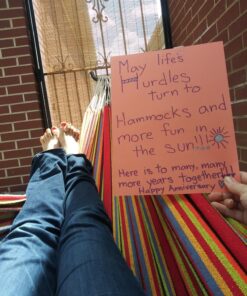 May life's
Hurdles
turn to
Hammocks and
more fun in
the sun!!!
Here is to many, many
more years together!
Happy Anniversary